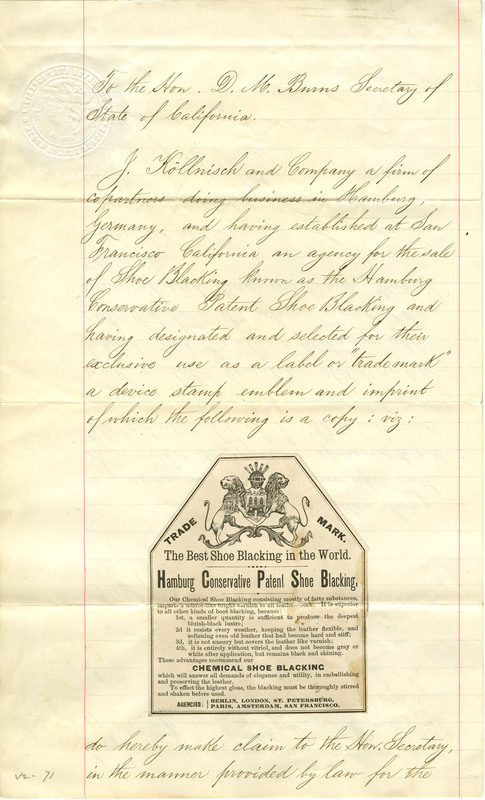 To the Hon. D. M. Burns Secretary of
State of California.
J. Köllnisch and Company a firm of
copartners doing business in Hamburg,
Germany, and having established at San
Francisco California an agency for the sale
of Shoe Blacking known as the Hamburg
Conservative Patent Shoe Blacking and
having designated and selected for their
exclusive use as a label or "trade mark"
a device stamp emblem and imprint
of which the following is a copy: viz:
TRADE MARK.
The Best Shoe Blacking in the World.
Hamburg Conservative Patent Shoe Blacking,
Our Chemical Shoe Blacking consisting mostly of fatty substances,
imparts a mirror-like bright varnish to all leather work. It is superior
to all other kinds of boot blacking, because:
1st, a smaller quantity is sufficient to produce the deepest
bluish-black lustre;
2d it resists every weather, keeping the leather flexible, and
softening even old leather that had become hard and stiff;
3d, it is not smeary but covers the leather like varnish;
4th, it is entirely without vitriol, and does not become gray or
white after application, but remains black and shining.
These advantages recommend our
CHEMICAL SHOE BLACKING
which will answer all demands of elegance and utility, in embellishing
and preserving the leather.
To effect the highest gloss, the blacking must be thoroughly stirred
and shaken before used.
AGENCIES: BERLIN, LONDON, ST. PETERSBURG,
PARIS, AMSTERDAM, SAN FRANCISCO.
do hereby make claim to the Hon. Secretary,
in the manner provided by law for the
71